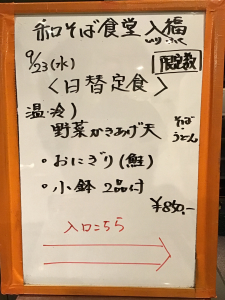 和そば食堂 入福
いり ふく
9/23(水) 限定数
<日替定食>
温・冷)
野菜かきあげ天 そば・うどん
・おにぎり(鮭)
・小鉢 2品付
¥850.-
入口こちら